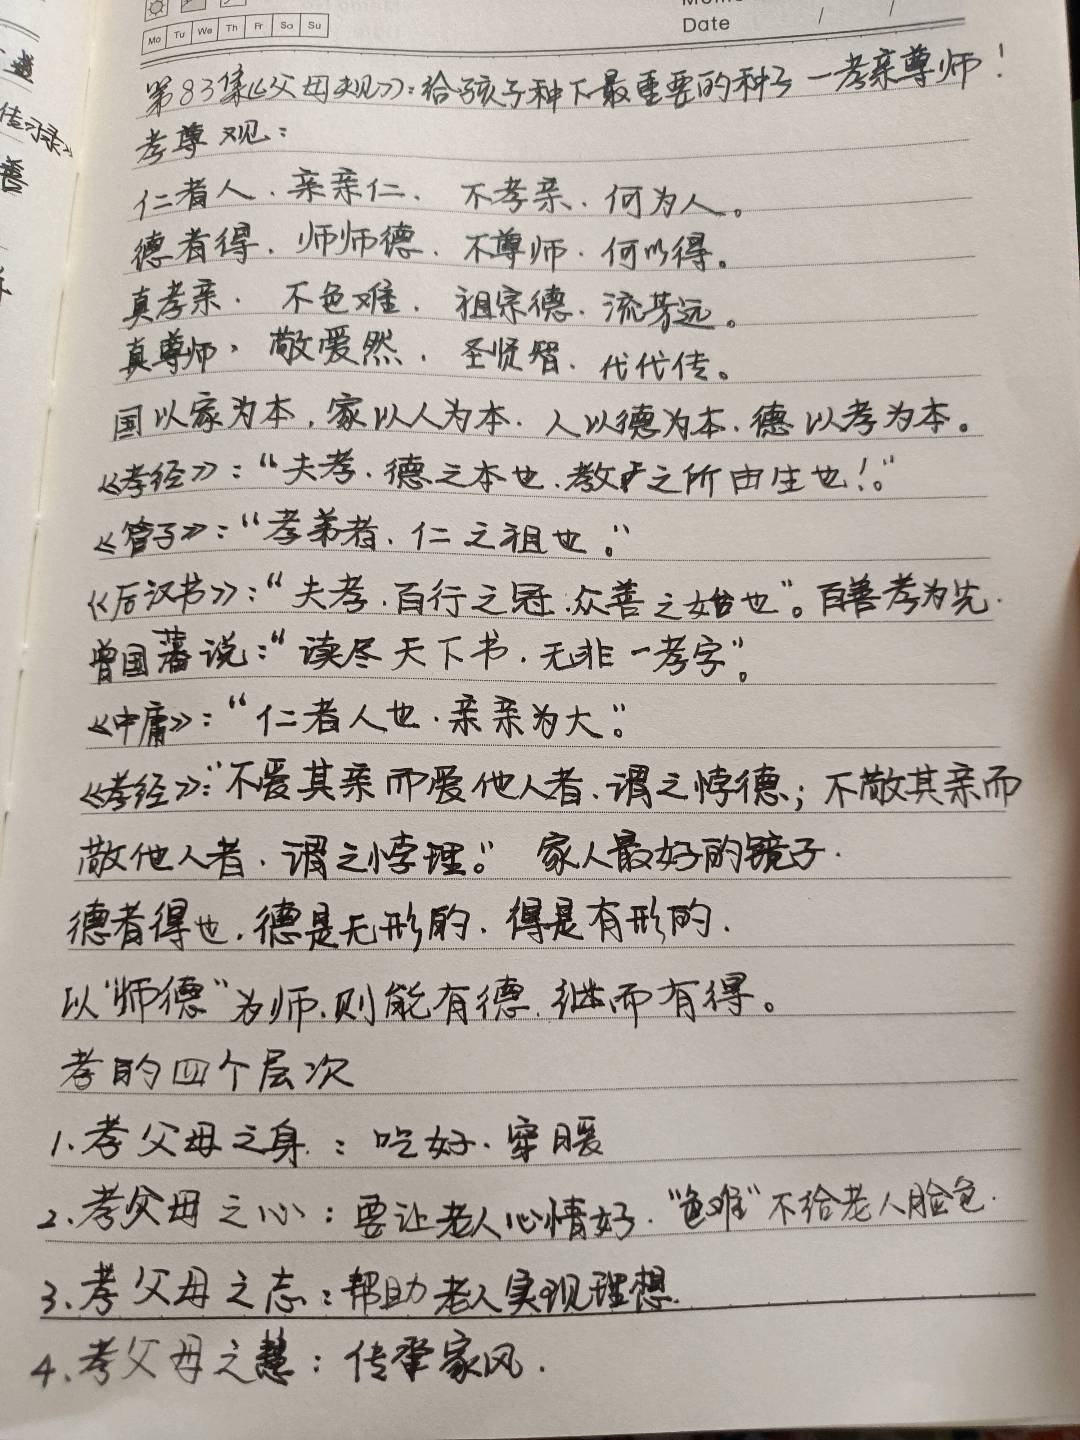 Mo Tu We Th Fr Sa Su
Date / /
传习录》
善
第83集《父母观》:给孩子种下最重要的种子一孝亲尊师!
孝尊观:
仁者人.亲亲仁、不孝亲、何为人。
德者得.师师德、不尊师.何以得。
真孝亲.不色难.祖宗德.流芳远。
真尊师,敬爱然.圣贤智.代代传。
国以家为本,家以人为本.人以德为本.德以孝为本。
《孝经》:“夫孝.德之本也.教之所由生也!。”
《管子》:“孝弟者、仁之祖也。”
《后汉书》:“夫孝.百行之冠.众善之始也”。百善孝为先.
曾国藩说:“读尽天下书.无非一孝字”。
《中庸》:“仁者人也.亲亲为大。”
《孝经》:“不爱其亲而爱他人者、谓之悖德;不敬其亲而
敬他人者、谓之悖理。”家人最好的镜子.
德者得也.德是无形的.得是有形的.
以“师德”为师.则能有德.继而有得。
孝的四个层次
1.孝父母之身:吃好.穿暖
2.孝父母之心:要让老人心情好.“色难”不给老人脸色.
3.孝父母之志:帮助老人实现理想.
4.孝父母之慧:传承家风.